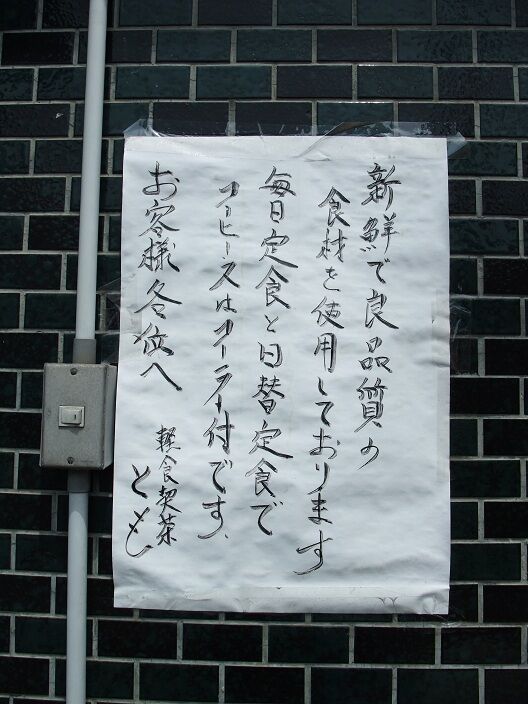 新鮮で良品質の
食材を使用しております
毎日定食と日替定食で
コーヒー又はコーラー付です、
お客様各位へ
軽食喫茶
とも